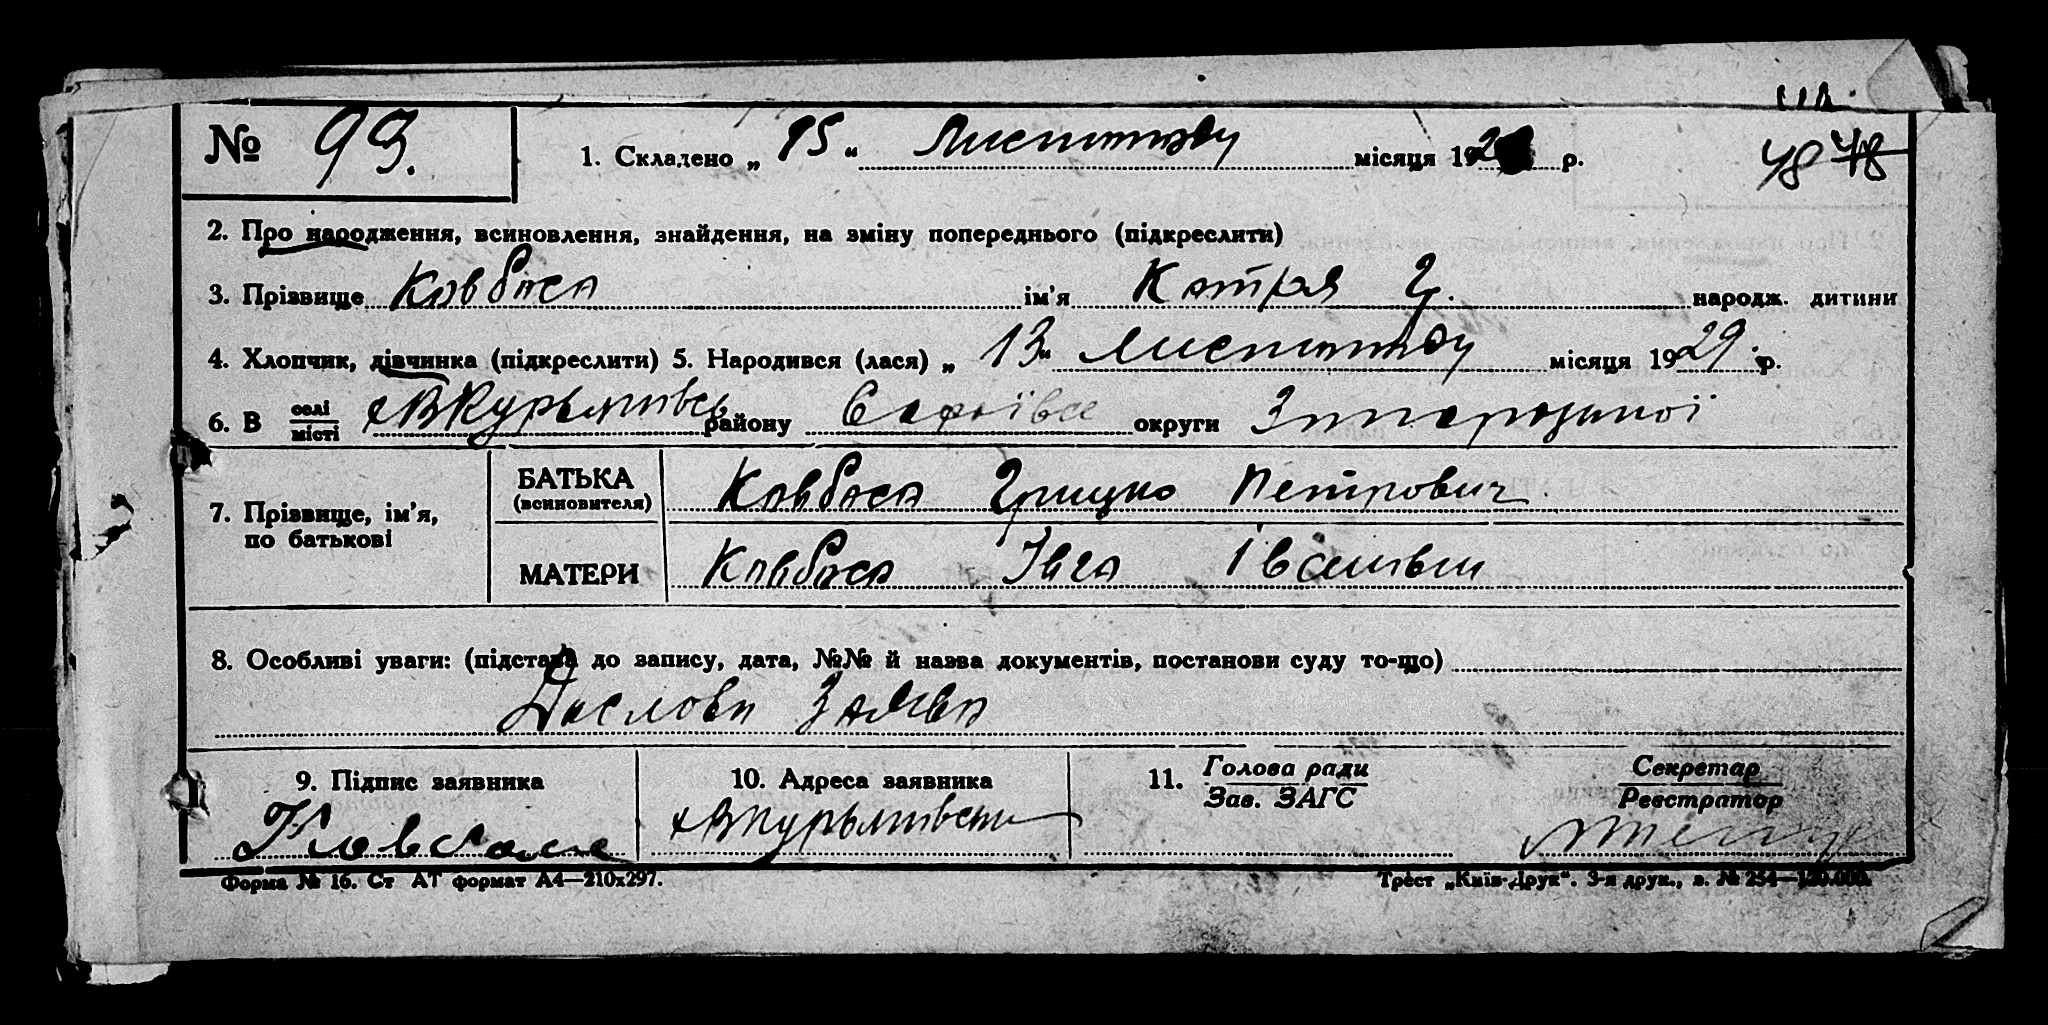 № 93. 1. Складено „ 15 “ Листопаду місяця 192 р.
48 48
2. Про народження, всиновлення, знайдення, на зміну попереднього (підкреслити)
3. Прізвище Ковбаса ім'я Катря Г. народж. дитини
4. Хлопчик, дівчинка (підкреслити) 5. Народився (лася) „ 13 “ Листопаду місяця 1929 р.
6. В селі місті району Софіївсь округи Запорізької
7. Прізвище, ім'я, по батькові
БАТЬКА (всиновителя) Ковбаса Грицко Петрович
МАТЕРИ Ковбаса Івга Іванівни
8. Особливі уваги: (підстава до запису, дата, №№ й назва документів, постанови суду то-що)
Дослова Заява
9. Підпис заявника 10. Адреса заявника 11. Голова ради Зав. ЗАГС Секретар Реєстратор
Форма № 16. Ст АТ формат А4—210х297. Трест „Київ-Друк“. 3-я друк., з. № 254—120.000.